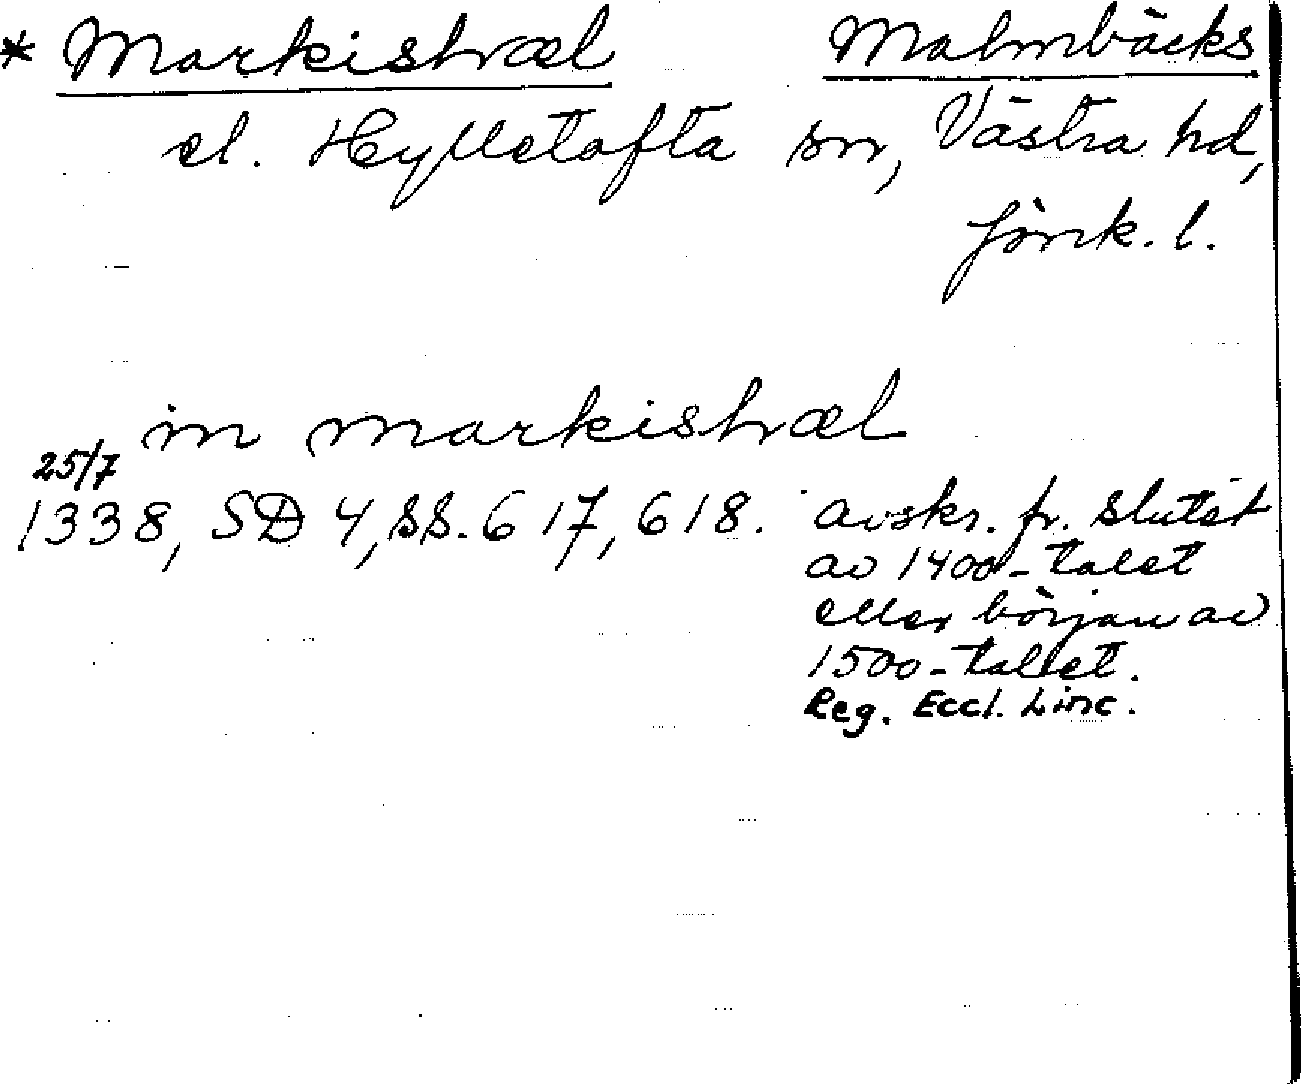 * Markishræl Malmbäcks
el. Hylletofta sn, Västra hd,
Jönk. l.
in markishræl
25/7
1338, SD 4, ss. 617, 618. avskr. fr. slutet
av 1400-talet
eller början av
1500-talet.
Reg. Eccl. Linc.